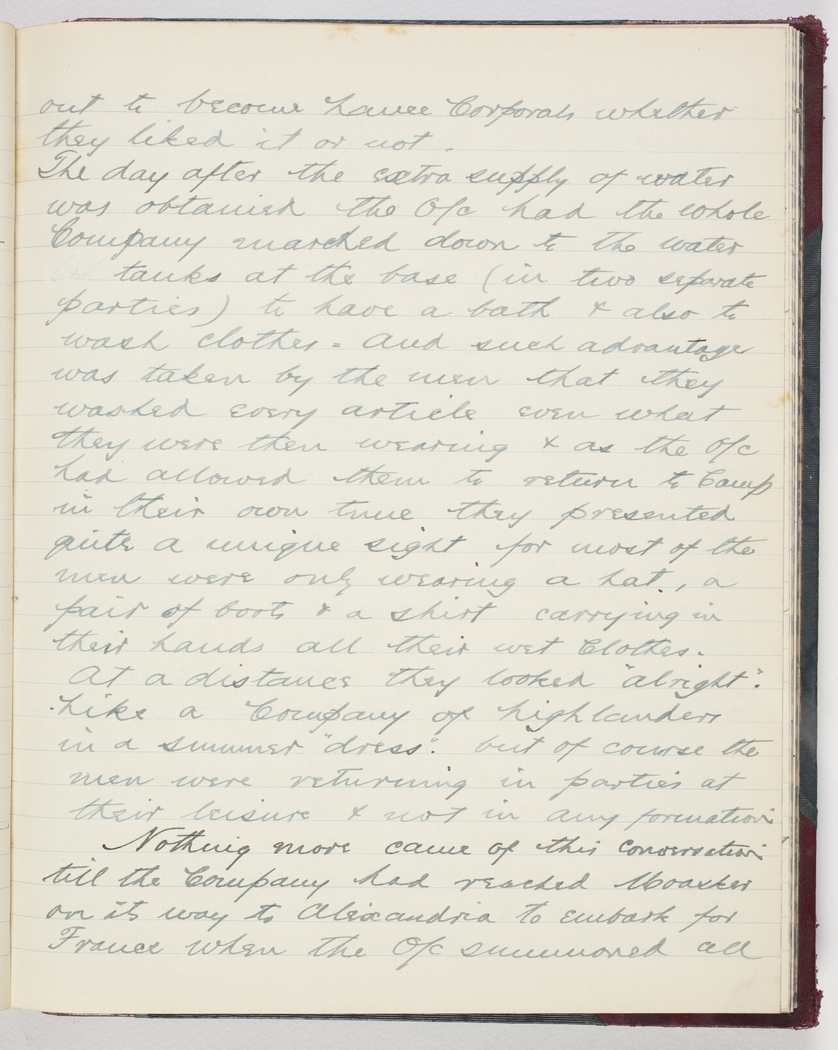 out to become Lance Corporals whether
they liked it or not.
The day after the extra supply of water
was obtained the O/c had the whole
Company marched down to the water
tanks at the base (in two separate
parties) to have a bath & also to
wash clothes. - And such advantage
was taken by the men that they
washed every article even what
they were then wearing & as the O/c
had allowed them to return to Camp
in their own time they presented
quite a unique sight for most of the
men were only wearing a hat, a
pair of boots & a shirt carrying in
their hands all their wet clothes.
At a distance they looked "alright".
Like a Company of highlanders
in a summer "dress". but of course the
men were returning in parties at
their leisure & not in any formation
Nothing more came of this conversation
till the Company had reached Moasker
on its way to Alexandria to embark for
France when the O/c summoned all